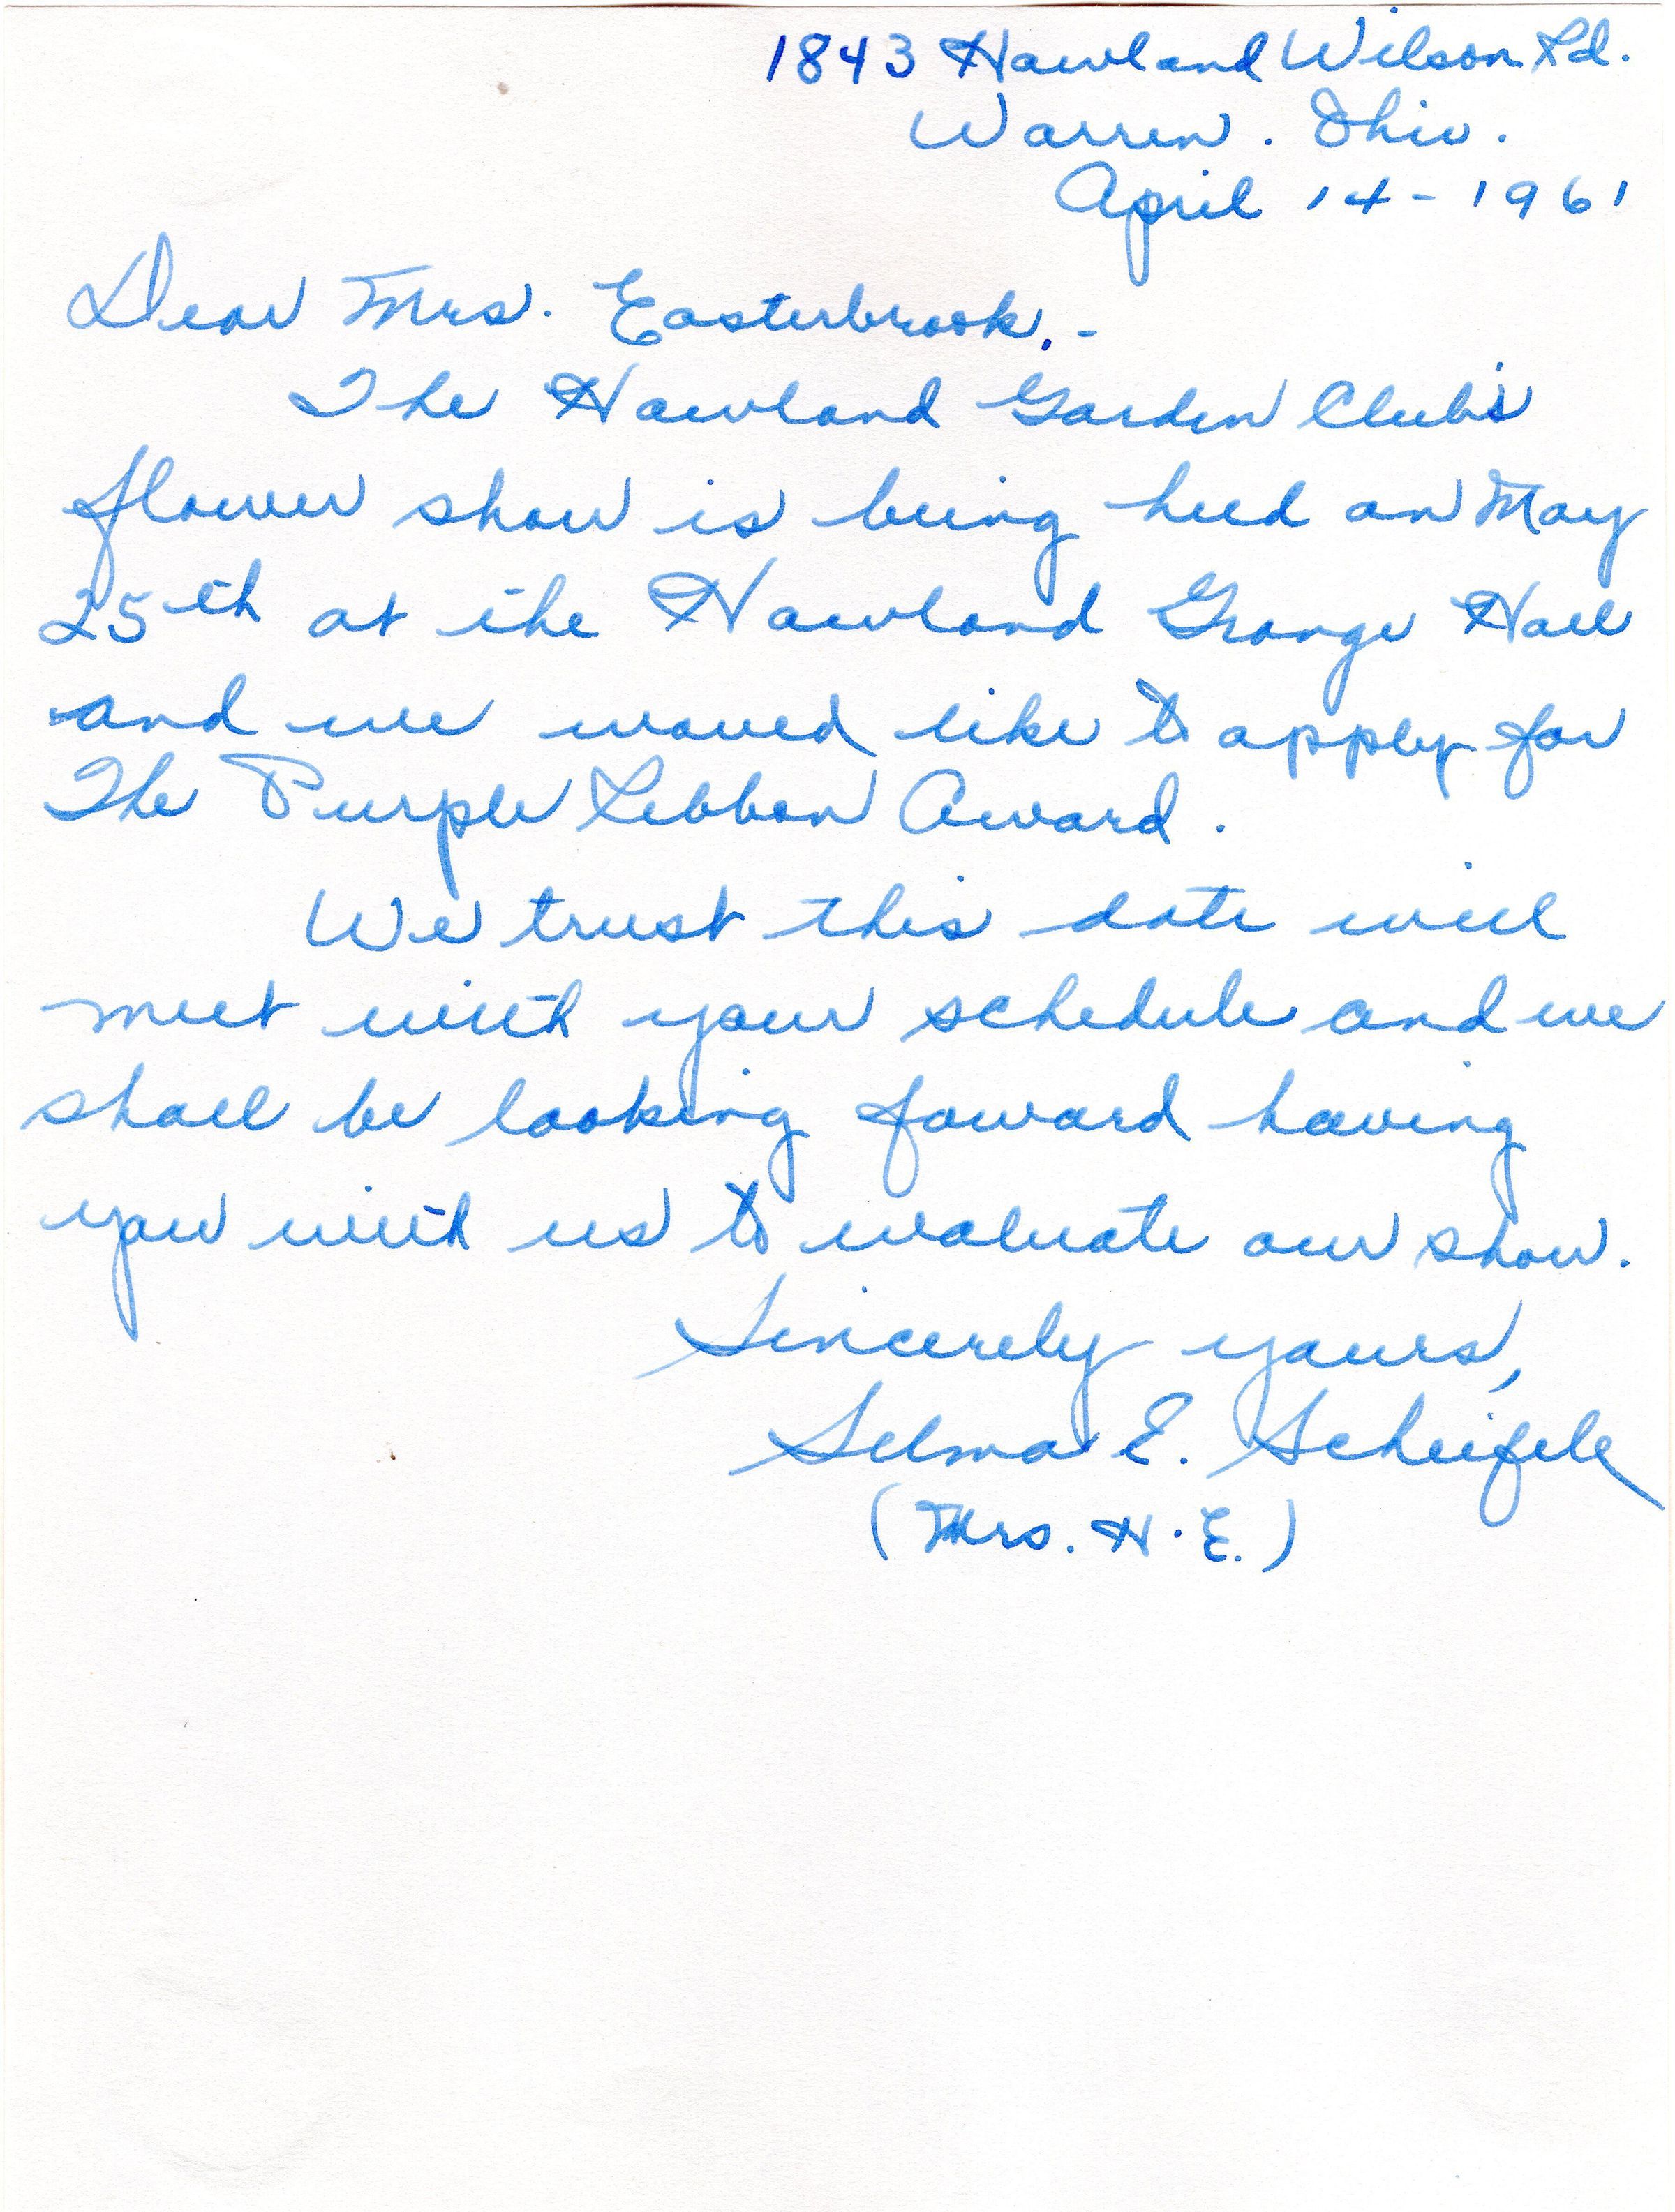 1843 Howland Wilson Rd.
Warren. Ohio.
April 14-1961
Dear Mrs. Easterbrook,-
The Howland Garden Club's
flower show is being held on May
25th at the Howland Grange Hall
and we would like to apply for
The Purple Ribbon Award.
We trust this date will
meet with your schedule and we
shall be looking foward having
you with us to evaluate our show.
Sincerely yours,
Selma E. Scheifele
(Mrs. H. E.)